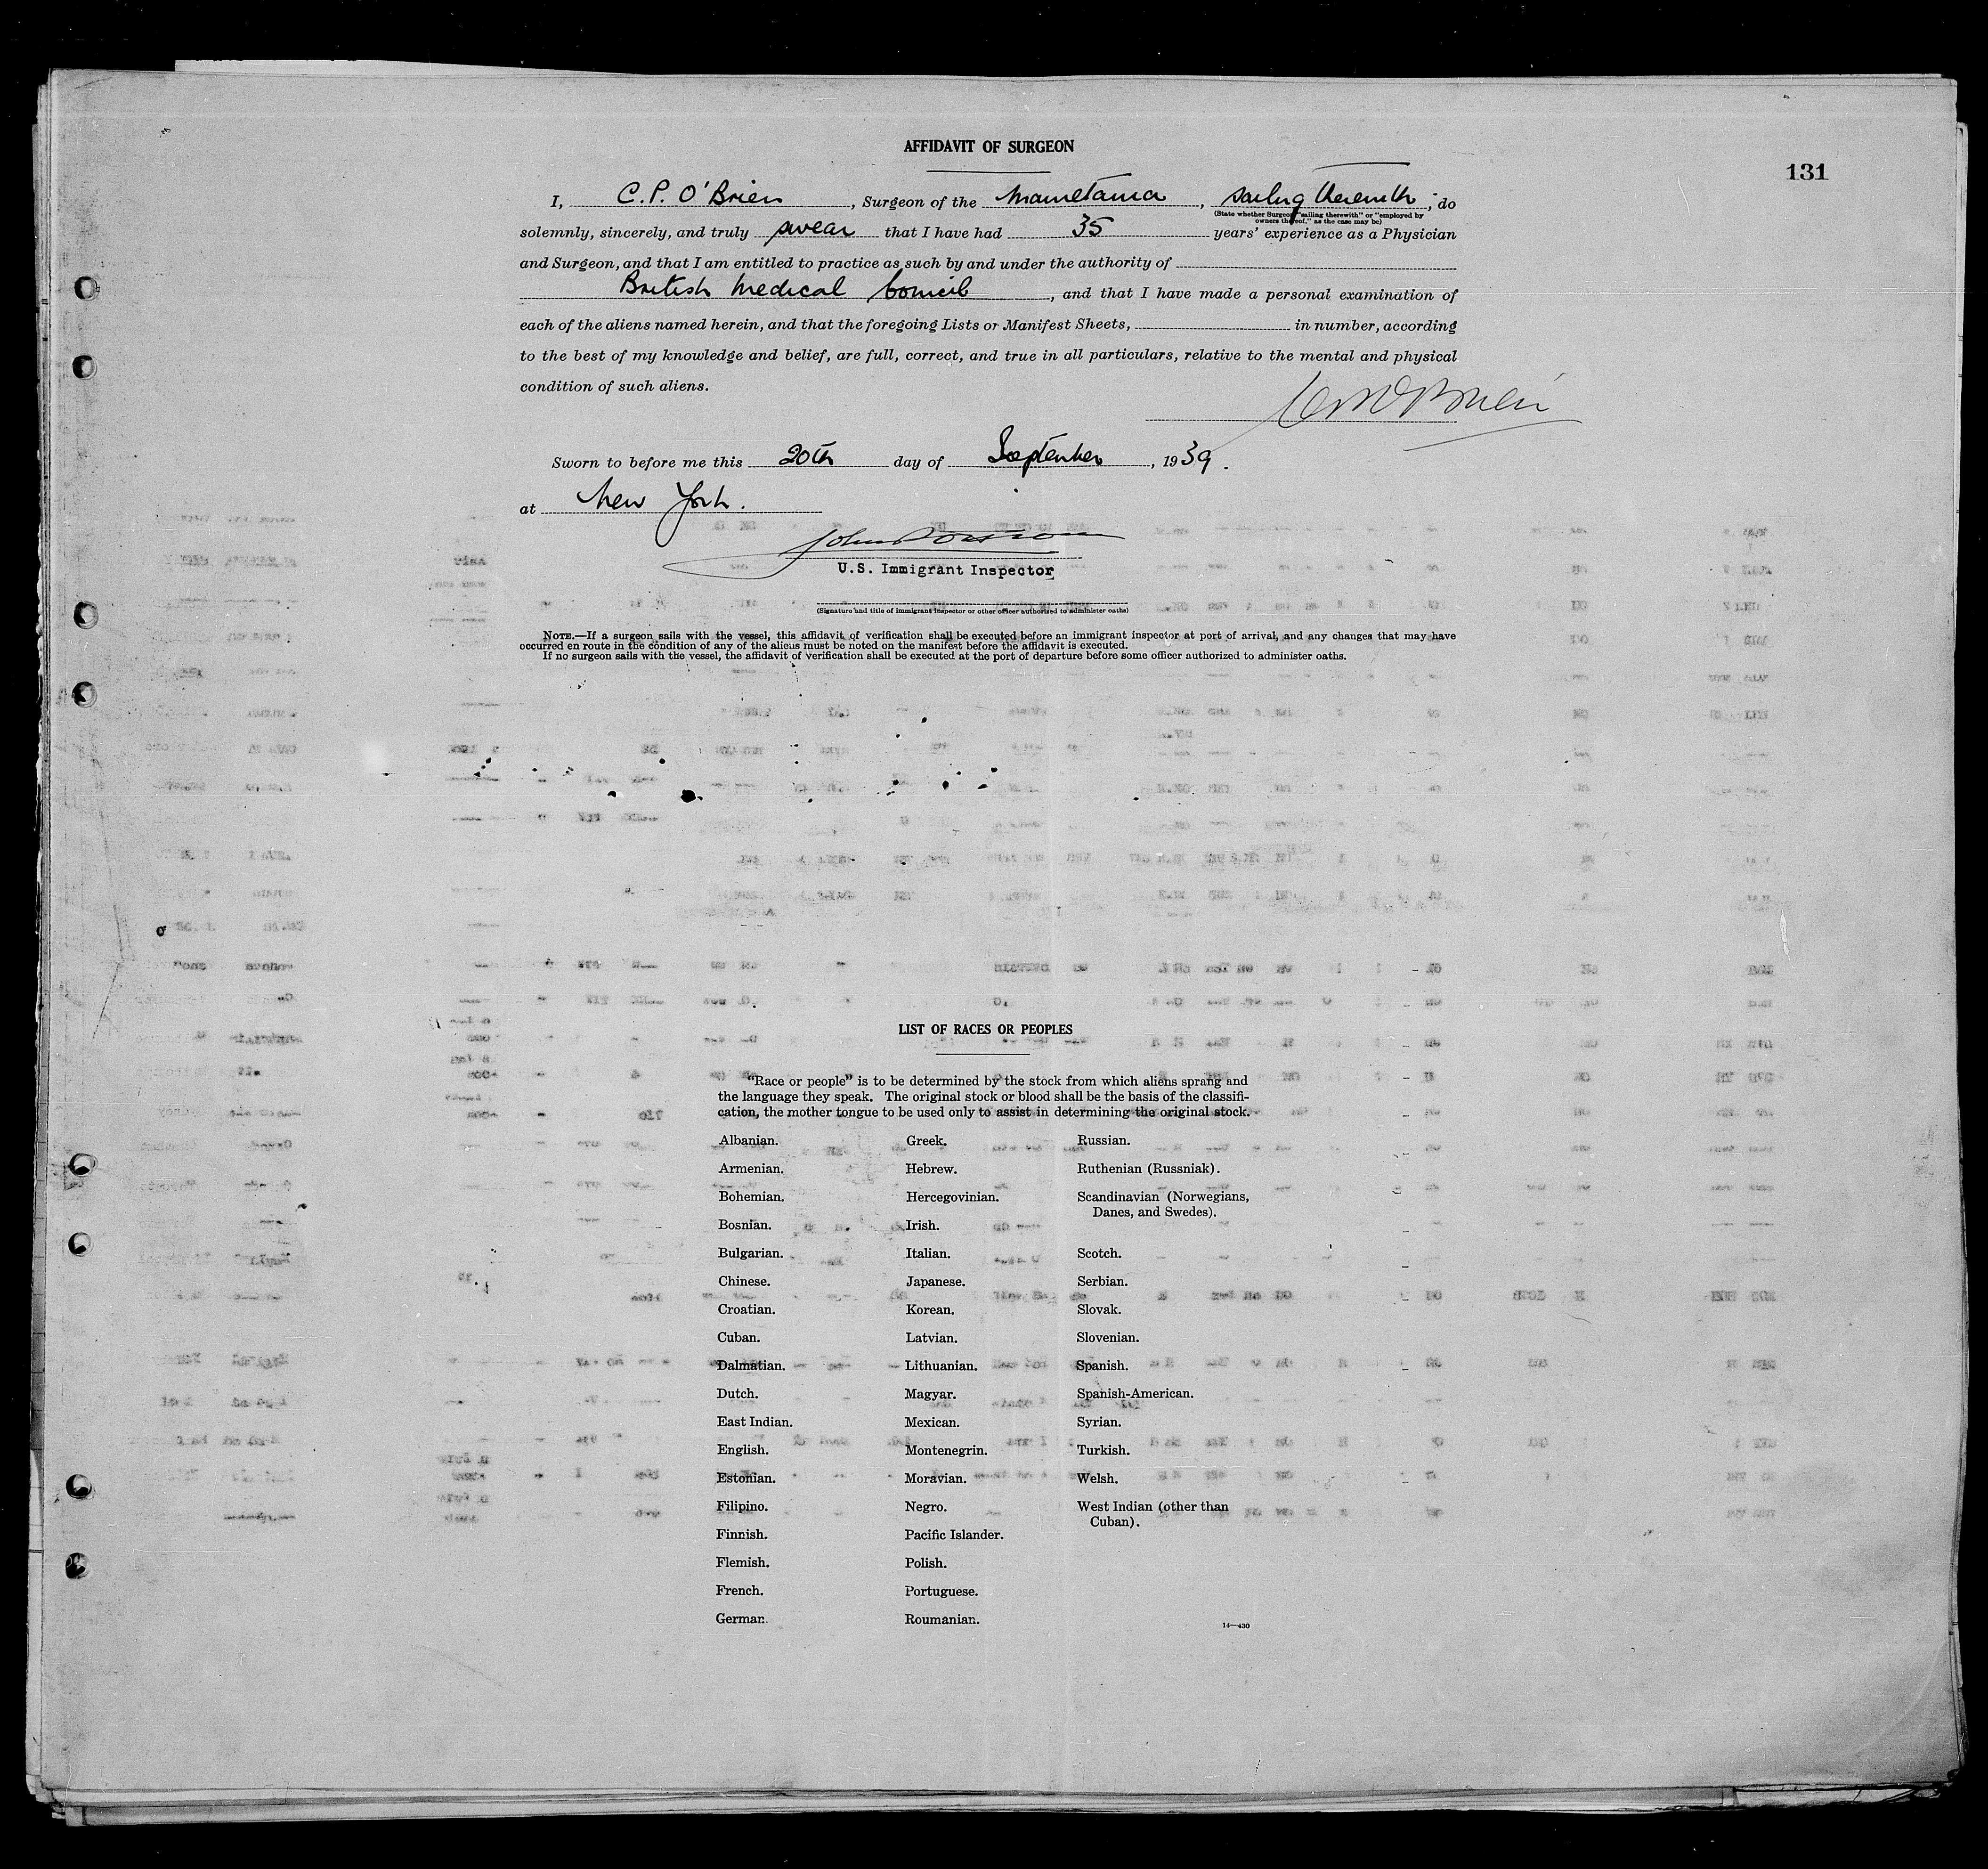 AFFIDAVIT OF SURGEON
131
I, C.P. O'Brien, Surgeon of the Mauretania, sailing therewith, do
(State whether Surgeon "sailing therewith" or "employed by
owners thereof," as the case may be)
solemnly, sincerely, and truly swear that I have had 35 years' experience as a Physician
and Surgeon, and that I am entitled to practice as such by and under the authority of
British Medical Council, and that I have made a personal examination of
each of the aliens named herein, and that the foregoing Lists or Manifest Sheets, in number, according
to the best of my knowledge and belief, are full, correct, and true in all particulars, relative to the mental and physical
condition of such aliens.
O'Brien
Sworn to before me this 20th day of September, 1939.
at New York.
John
U.S. Immigrant Inspector
(Signature and title of immigrant inspector or other officer authorized to administer oaths)
NOTE.—If a surgeon sails with the vessel, this affidavit of verification shall be executed before an immigrant inspector at port of arrival, and any changes that may have
occurred en route in the condition of any of the aliens must be noted on the manifest before the affidavit is executed.
If no surgeon sails with the vessel, the affidavit of verification shall be executed at the port of departure before some officer authorized to administer oaths.
LIST OF RACES OR PEOPLES
"Race or people" is to be determined by the stock from which aliens sprang and
the language they speak. The original stock or blood shall be the basis of the classifi-
cation, the mother tongue to be used only to assist in determining the original stock.
Albanian.
Armenian.
Bohemian.
Bosnian.
Bulgarian.
Chinese.
Croatian.
Cuban.
Dalmatian.
Dutch.
East Indian.
English.
Estonian.
Filipino.
Finnish.
Flemish.
French.
German.
Greek.
Hebrew.
Hercegovinian.
Irish.
Italian.
Japanese.
Korean.
Latvian.
Lithuanian.
Magyar.
Mexican.
Montenegrin.
Moravian.
Negro.
Pacific Islander.
Polish.
Portuguese.
Roumanian.
Russian.
Ruthenian (Russniak).
Scandinavian (Norwegians,
Danes, and Swedes).
Scotch.
Serbian.
Slovak.
Slovenian.
Spanish.
Spanish-American.
Syrian.
Turkish.
Welsh.
West Indian (other than
Cuban).
14—430